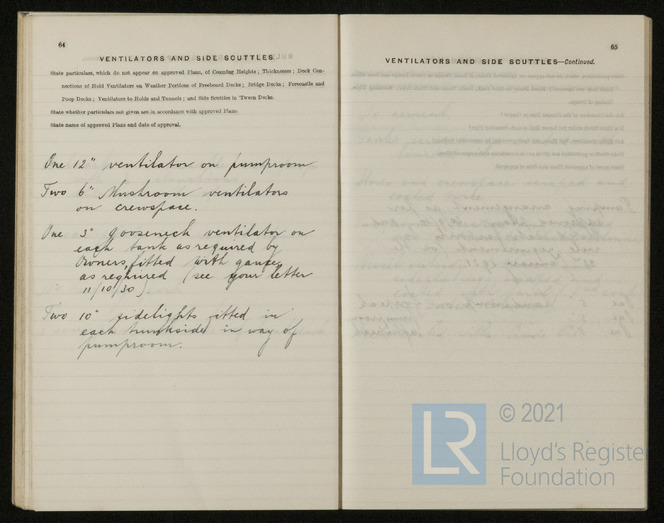 64
VENTILATORS AND SIDE SCUTTLES
State particulars, which do not appear on approved Plans, of Coaming Heights; Thicknesses; Deck Con-
nections of Hold Ventilators on Weather Portions of Freeboard Decks; Bridge Decks; Forecastle and
Poop Decks; Ventilators to Holds and Tunnels; and Side Scuttles in 'Tween Decks.
State whether particulars not given are in accordance with approved Plans.
State name of approved Plans and date of approval.
One 12" ventilator on pumproom
Two 6" Mushroom ventilators
on crewspace.
One 3" gooseneck ventilator on
each tank as required by
Owners, fitted with gauzes
as required (see your letter
11/10/30).
Two 10" sidelights fitted in
each trunkside in way of
pumproom.
65
VENTILATORS AND SIDE SCUTTLES—Continued.
LR
© 2021
Lloyd's Register
Foundation